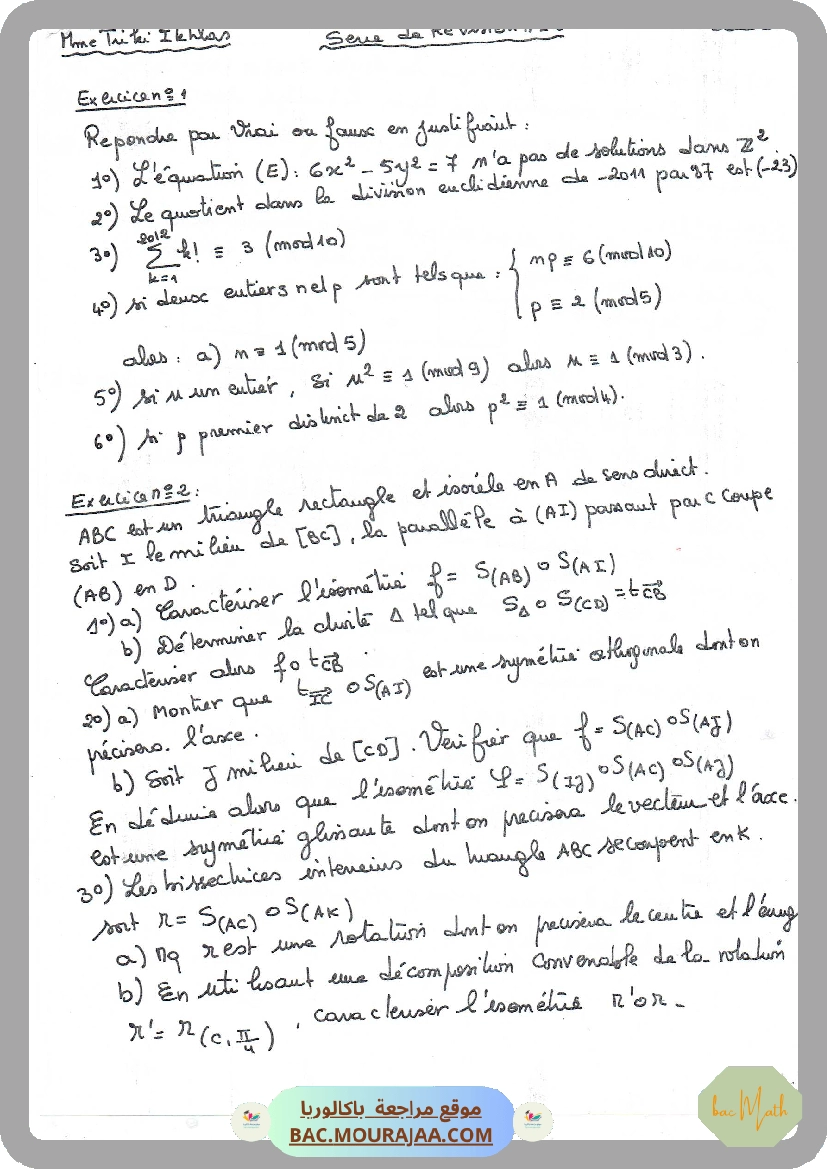 Mme Triki Ikhlas
Serie de Revision
Exercice n=1
Repondre par Vrai ou faux en justifiant :
1°) L'équation (E): 6x² - 5y² = 7 n'a pas de solutions dans ℤ².
2°) Le quotient dans la division euclidienne de -2011 par 87 est (-23)
3°) 2012 Σ k=1 k! ≡ 3 (mod 10)
4°) si deux entiers n et p sont tels que : { np ≡ 6 (mod 10)
p ≡ 2 (mod 5)
alors : a) n ≡ 1 (mod 5)
5°) si n un entier, si n² ≡ 1 (mod 9) alors n ≡ 1 (mod 3).
6°) si p premier distinct de 2 alors p² ≡ 1 (mod 4).
Exercice n=2:
ABC est un triangle rectangle et isocèle en A de sens direct.
Soit I le milieu de [BC], la parallèle à (AI) passant par C coupe
(AB) en D.
1°) a) Caractériser l'isométrie f = S(AB) o S(AI)
b) Déterminer la droite Δ tel que SΔ o S(CD) = t CB→
Caractériser alors f o t CB→.
2°) a) Montrer que t IC→ o S(AI) est une symétrie orthogonale dont on
précisera l'axe.
b) Soit J milieu de [CD]. Vérifier que f = S(AC) o S(AJ)
En déduire alors que l'isométrie φ = S(IJ) o S(AC) o S(AJ)
est une symétrie glissante dont on precisera le vecteur et l'axe.
3°) Les bissectrices interieurs du triangle ABC se coupent en K.
soit r = S(AC) o S(AK)
a) Mq r est une rotation dont on precisera le centre et l'ang
b) En utilisant une décomposition convenable de la rotation
r' = r (C, π/4), caracteriser l'isométrie r' o r.
موقع مراجعة باكالوريا
BAC.MOURAJAA.COM
bac Math